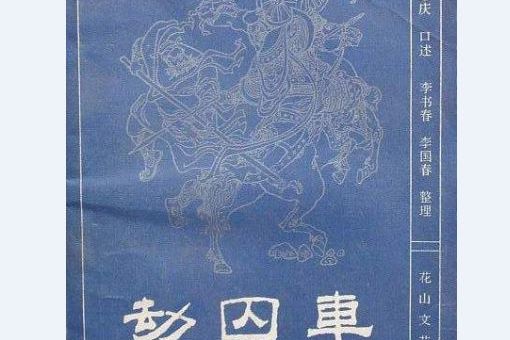 庆 口述 李书春 李国春 整理
花山文
劫囚車